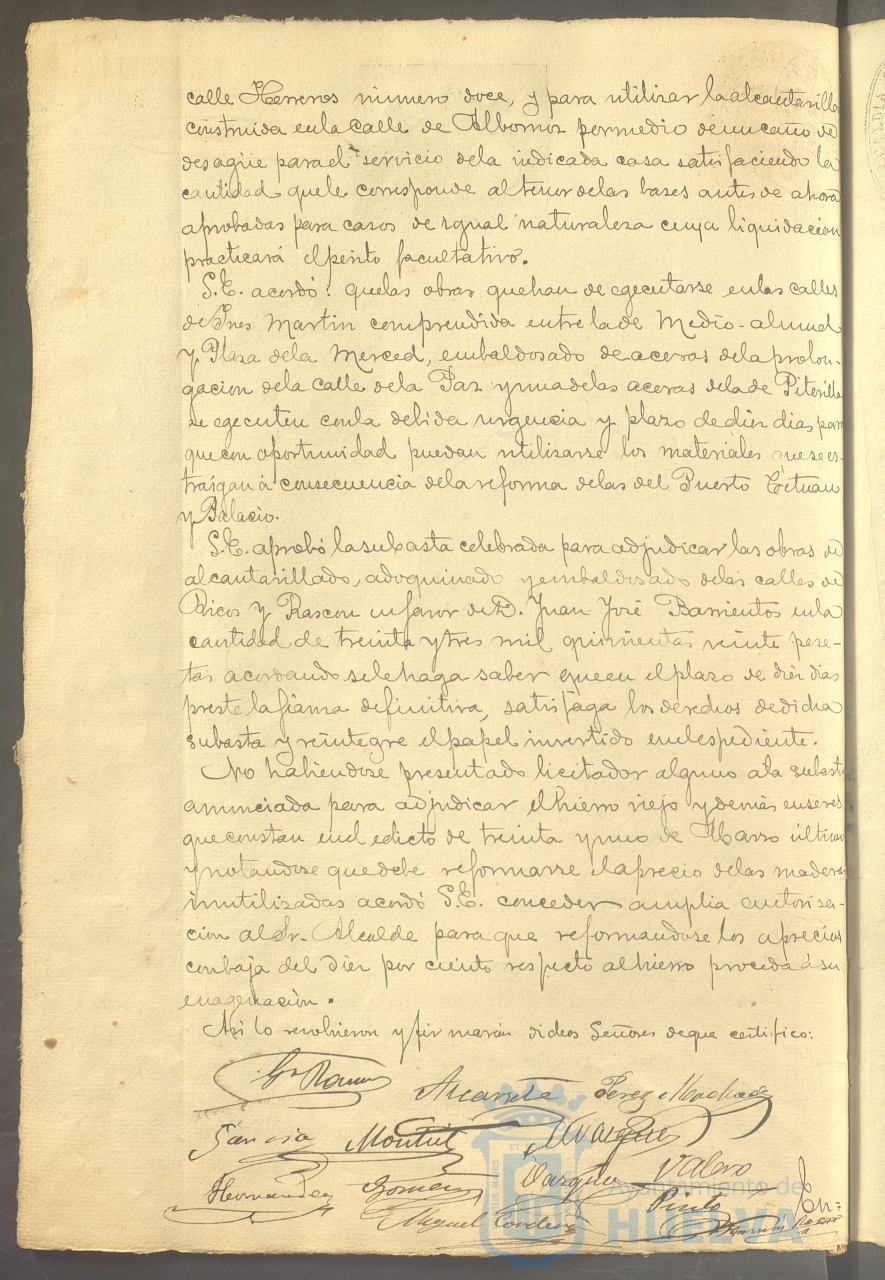 calle Herreros número doce, y para utilizar la alcantarilla
construida en la calle de Albornoz por medio de un caño de
desagüe para el servicio de la indicada casa satisfaciendo la
cantidad que le corresponde al tenor de las bases antes de ahora
aprobadas para casos de igual naturaleza cuya liquidación
practicará el perito facultativo.
S.E. acordó: que las obras que han de egecutarse en las calles
de Ines Martin comprendida entre la de Medio-almud
y Plaza de la Merced, embaldosado de aceras de la prolon-
gacion de la calle de la Paz y una de las aceras de la de Piterilla
se egecuten con la debida urgencia y plazo de diez dias para
que con oportunidad puedan utilizarse los materiales que se es-
traigan á consecuencia de la reforma de las del Puerto Tetuan
y Palacio.
S.E. aprobó la subasta celebrada para adjudicar las obras de
alcantarillado, adoquinado y embaldosado de las calles de
Ricos y Rascon en favor de D. Juan José Barrientos en la
cantidad de treinta y tres mil quinientas veinte pese-
tas acordando se le haga saber que en el plazo de diez dias
preste la fianza definitiva, satisfaga los derechos de dicha
subasta y reintegre el papel invertido en el espediente.
No habiendose presentado licitador alguno a la subasta
anunciada para adjudicar el hierro viejo y demás enseres
que constan en el edicto de treinta y uno de Marzo último
y notandose que debe reformarse el aprecio de las maderas
inutilizadas acordó S.E. conceder amplia autoriza-
cion al Sr. Alcalde para que reformandose los aprecios
con baja del diez por ciento respecto al hierro proceda á su
enagenación.
Asi lo resolvieron y firmarán dichos Señores de que certifico:
Garcia Montiel Vazquez
Hernandez Gomez Vazquez Valero
Miguel Cordero Pinto
Ayuntamiento de
HUELVA